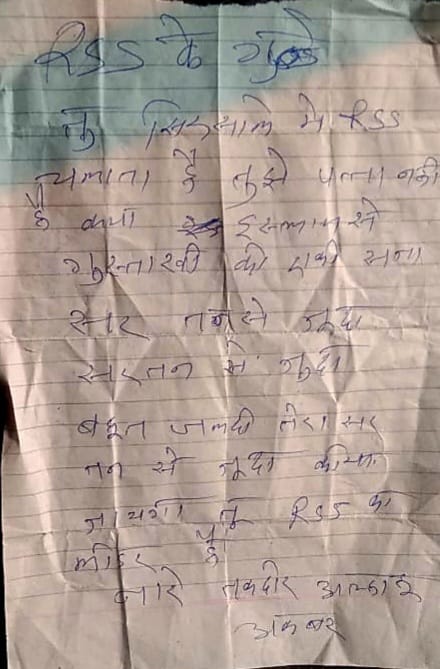 RSS के गुन्डे
तु सिरसाले मे RSS
चलाता है तुझे पत्ता नही
है क्या इस्लाम से
गुस्ताखी की एकी सजा
सार तन से जूदा
सार तन से जुदा
बहुत जलदी तेरा सर
तन से जूदा कीया
जायेगा तू RSS का
लीडर है
नारे तकदीर अल्लाह
अकबर